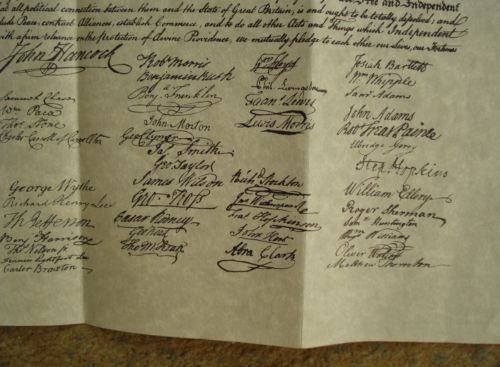 Free and Independent
at all political connection between them and the State of Great Britain, is and ought to be totally dissolved; and
Peace, contract Alliances, establish Commerce, and to do all other Acts and Things which Independent
reliance on the protection of divine Providence, we mutually pledge to each other our Lives, our Fortunes
John Hancock
Robt Morris
Benjamin Rush
Benja Franklin
John Morton
Geo Clymer
Jas Smith
Geo Taylor
James Wilson
Geo Ross
Caesar Rodney
Geo Read
Tho M:Kean
Wm Floyd
Phil. Livingston
Frans Lewis
Lewis Morris
Richd Stockton
Jno Witherspoon
Fras Hopkinson
John Hart
Abra Clark
Josiah Bartlett
Wm Whipple
Saml Adams
John Adams
Robt Treat Paine
Elbridge Gerry
Step. Hopkins
William Ellery
Roger Sherman
Saml Huntington
Wm Williams
Oliver Wolcott
Matthew Thornton
Samuel Chase
Wm Paca
Thos Stone
Charles Carroll of Carrollton
George Wythe
Richard Henry Lee
Th Jefferson
Benj Harrison
Thos Nelson jr.
Francis Lightfoot Lee
Carter Braxton